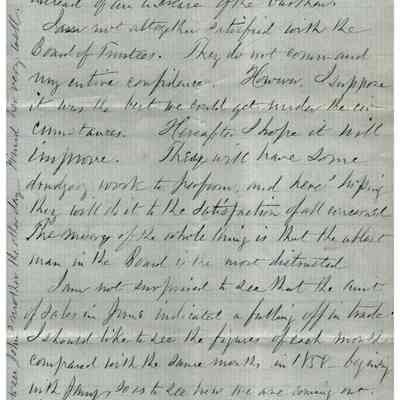 instead of an increase of the
I am not altogether satisfied with the
Board of Trustees. They do not command
my entire confidence. However, I suppose
it was the best we could get under the cir-
cumstances. Hereafter I hope it will
improve. They will have some
drudgery work to perform, and here's hoping
they will do it to the satisfaction of all concerned
The misery of the whole thing is that the ablest
man in the Board is the most distrusted
I am not surprised to see that the amt
of sales in June indicated a falling off in trade
I should like to see the figures of each month
compared with the same months in 1888
with Jany, so as to see how we are coming out.
another the other day very well.